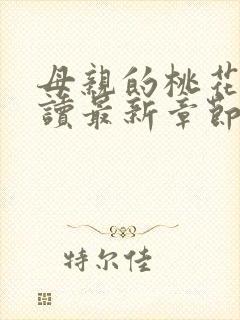 母親的桃花
讀最新章節
特尔佳